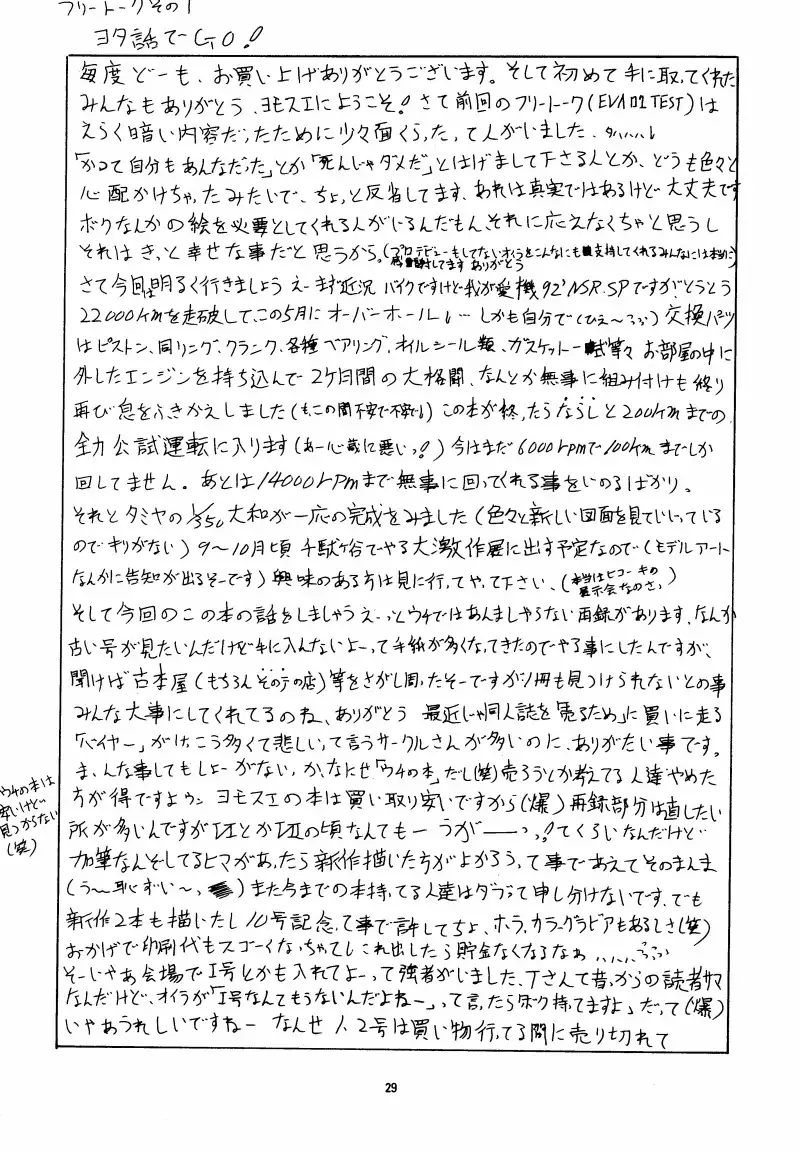 フリートークその1
ヨタ話でGO!
毎度どーも、お買い上げありがとうございます。そして初めて手に取ってくれた
みんなもありがとう、ヨモスエにようこそ!さて前回のフリートーク(EVA02 TEST)は
えらく暗い内容だったために少々面くらったって人がいました、タハハハ
「かつて自分もあんなだった」とか「死んじゃダメだ」とはげまして下さる人とか、どうも色々と
心配かけちゃったみたいで、ちょっと反省してます、あれは真実ではあるけど大丈夫です
ボクなんかの絵を必要としてくれる人がいるんだもん、それに応えなくちゃと思うし
それはきっと幸せな事だと思うから。(プロデビューもしてないオイラをこんなにも支持してくれるみんなには本当に
感謝してます ありがとう)
さて今回は明るく行きましょう えーまず近況 バイクですけど我が愛機92'NSR.SPですがとうとう
22000kmを走破して、この5月にオーバーホールし…しかも自分で(ひえ〜ふふ)交換パーツ
はピストン、同リング、クランク、各種ベアリング、オイルシール類、ガスケット一式等々 お部屋の中に
外したエンジンを持ち込んで2ヶ月間の大格闘、なんとか無事に組み付けも終り
再び息をふきかえしました(もっこの間不安で不安で)この本が終ったらならしと200kmまでの
全力公試運転に入ります(あー心蔵に悪いっ!)今はまだ6000rpmで100kmまでしか
回してません。あとは14000rpmまで無事に回ってくれる事をいのるばかり。
それとタミヤの1/350大和が一応の完成をみました(色々と新しい図面を見ていじっている
のでキリがない)9〜10月頃 千駄ヶ谷でやる大激作展に出す予定なので(モデルアート
なんかに告知が出るそーです)興味のある方は見に行ってやって下さい、(本当はヒコーキの
展示会なのさっ)
そして今回のこの本の話をしましょう えーっとウチではあんましやらない再録があります、なんか
古い号が見たいんだけど手に入んないよーって手紙が多くなってきたのでやる事にしたんですが、
聞けば古本屋(もちろんその手の店)等をさがし回ったそーですが1冊も見つけられないとの事
みんな大事にしてくれてるのね、ありがとう 最近じゃ同人誌を「売るため」に買いに走る
「バイヤー」がけっこう多くて悲しいって言うサークルさんが多いのに、ありがたい事です。
まっんな事してもしょーがないっか、なにせ「ウチの本」だし(笑)売ろうとか考えてる人達やめた
方が得ですよゥン ヨモスエの本は買い取り安いですから(爆)再録部分は直したい
ウチの本は
安いけど
見つからない
(笑)
所が多いんですがⅠとかⅡの頃なんてもーうがーーっっ!てくらいなんだけど
加筆なんぞしてるヒマがあったら新作描いたちがよかろうって事であえてそのまんま
(う〜恥ずい〜っ)また今までの本持ってる人達はダブって申し分けないです、でも
新作2本も描いたし10号記念って事で許してちょ、ホラ、カラーグラビアもあるしさ(笑)
おかげで印刷代もスゴーくなっちゃてしこれ出したら貯金なくなるなぁ……ふふ
そーいやあ会場でⅠ号とかも入れてよーって強者がいました、Tさんて昔っからの読者サマ
なんだけど、オイラが「Ⅰ号なんてもうないんだよねー」って言ったら「ボク持てますよ」だって(爆)
いやあうれしいですねー なんせ1、2号は買い物行ってる間に売り切れて
29